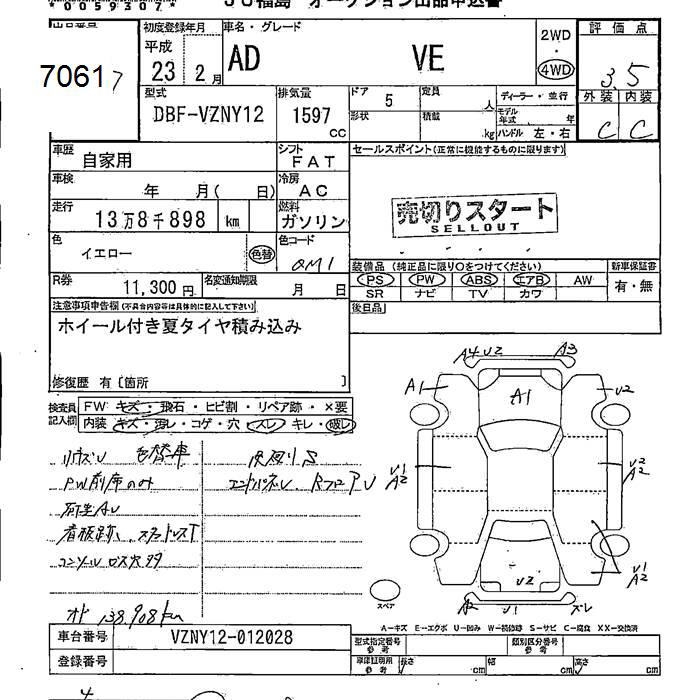 *0059307*
ＪＵ福島 オークション出品申込書
出品番号 初度登録年月 車名・グレード 評価点
70617 平成 23 2月 AD VE 2WD・4WD 3.5
型式 排気量 ドア 5 定員 人 ディーラー・並行 外装 内装
DBF-VZNY12 1597 cc 形状 積載 kg モデル年式 年 ハンドル 左・右 C C
車歴 自家用 シフト FAT セールスポイント(正常に機能するものに限ります)
車検 年 月( 日) 冷房 AC
走行 13万8千898 km 燃料 ガソリン 売切りスタート
SELLOUT
色 イエロー 色替 色コード QM1
装備品 (純正品に限り○をつけてください) 新車保証書
R券 11,300円 名変通知期限 月 日 PS PW ABS エアB AW 有・無
SR ナビ TV カワ
注意事項申告欄(不具合内容等は具体的に記入して下さい) 後日品
ホイール付き夏タイヤ積み込み
修復歴 有〔箇所 〕
検査員記入欄 FW: キズ・飛石・ヒビ割・リペア跡・×要
内装 キズ・汚レ・コゲ・穴 スレ・キレ・破レ
色替車
PW前席のみ
看板跡
138,908km
A4 U2 A3
A1 A1 U2
U1 A2 U2 A2
U2 U1 A2
A2 U1 ズレ
スペア
A-キズ E-エクボ U-凹み W-補修跡 S-サビ C-腐食 XX-交換済
車台番号 VZNY12-012028 型式指定番号 参考 類別区分番号 参考
登録番号 車庫証明用 参考 長さ cm 幅 cm 高さ cm